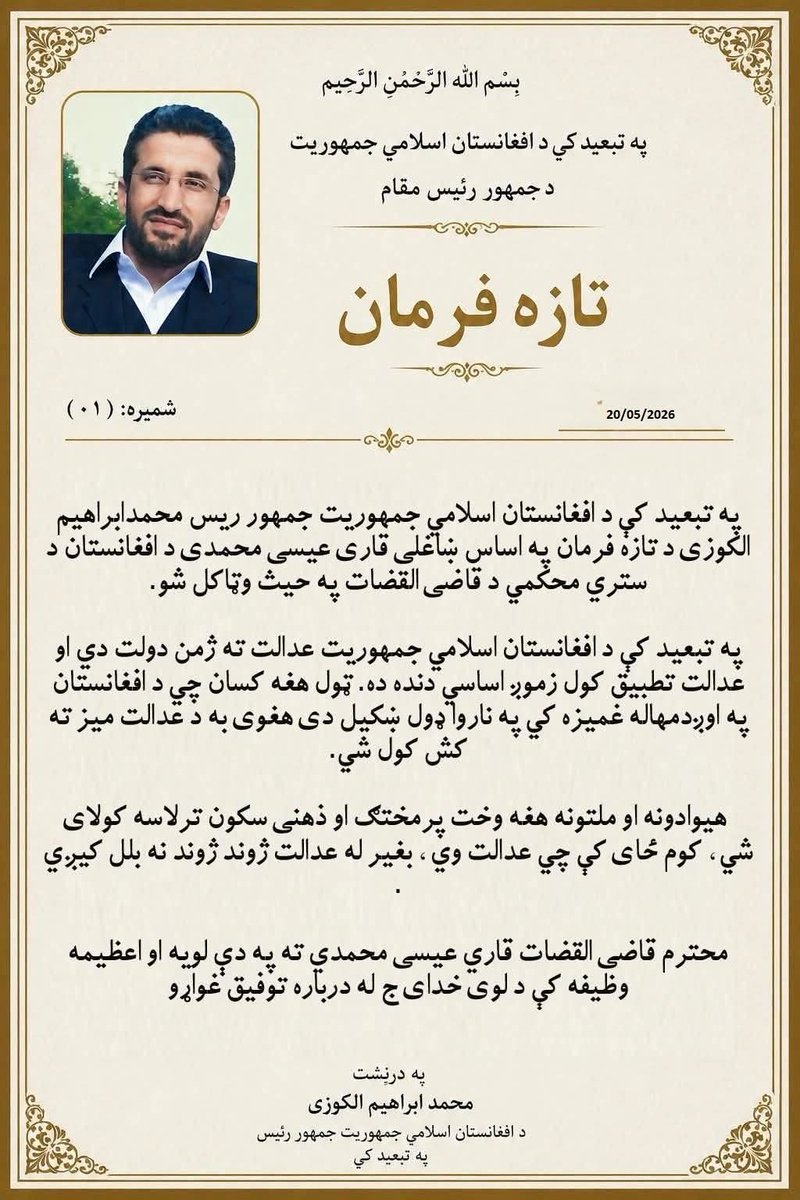 بِسْمِ اللهِ الرَّحْمٰنِ الرَّحِیم
په تبعید کي د افغانستان اسلامي جمهوریت
د جمهور رئیس مقام
تازه فرمان
شمیره: (۰۱)
20/05/2026
په تبعید کې د افغانستان اسلامي جمهوریت جمهور ریس محمدابراهیم
الکوزی د تازه فرمان په اساس ښاغلی قاری عیسی محمدی د افغانستان د
ستري محکمي د قاضی القضات په حیث وټاکل شو.
په تبعید کې د افغانستان اسلامي جمهوریت عدالت ته ژمن دولت دي او
عدالت تطبیق کول زموږ اساسي دنده ده. ټول هغه کسان چي د افغانستان
په اوږدمهاله غمیزه کي په ناروا ډول ښکیل دی هغوی به د عدالت میز ته
کش کول شي.
هیوادونه او ملتونه هغه وخت پرمختګ او ذهنی سکون ترلاسه کولای
شي، کوم ځای کې چي عدالت وي، بغیر له عدالت ژوند ژوند نه بلل کیږي
.
محترم قاضی القضات قاري عیسی محمدي ته په دې لویه او اعظیمه
وظیفه کې د لوی خدای ج له درباره توفیق غواړو
په درنښت
محمد ابراهیم الکوزی
د افغانستان اسلامي جمهوریت جمهور رئیس
په تبعید کي